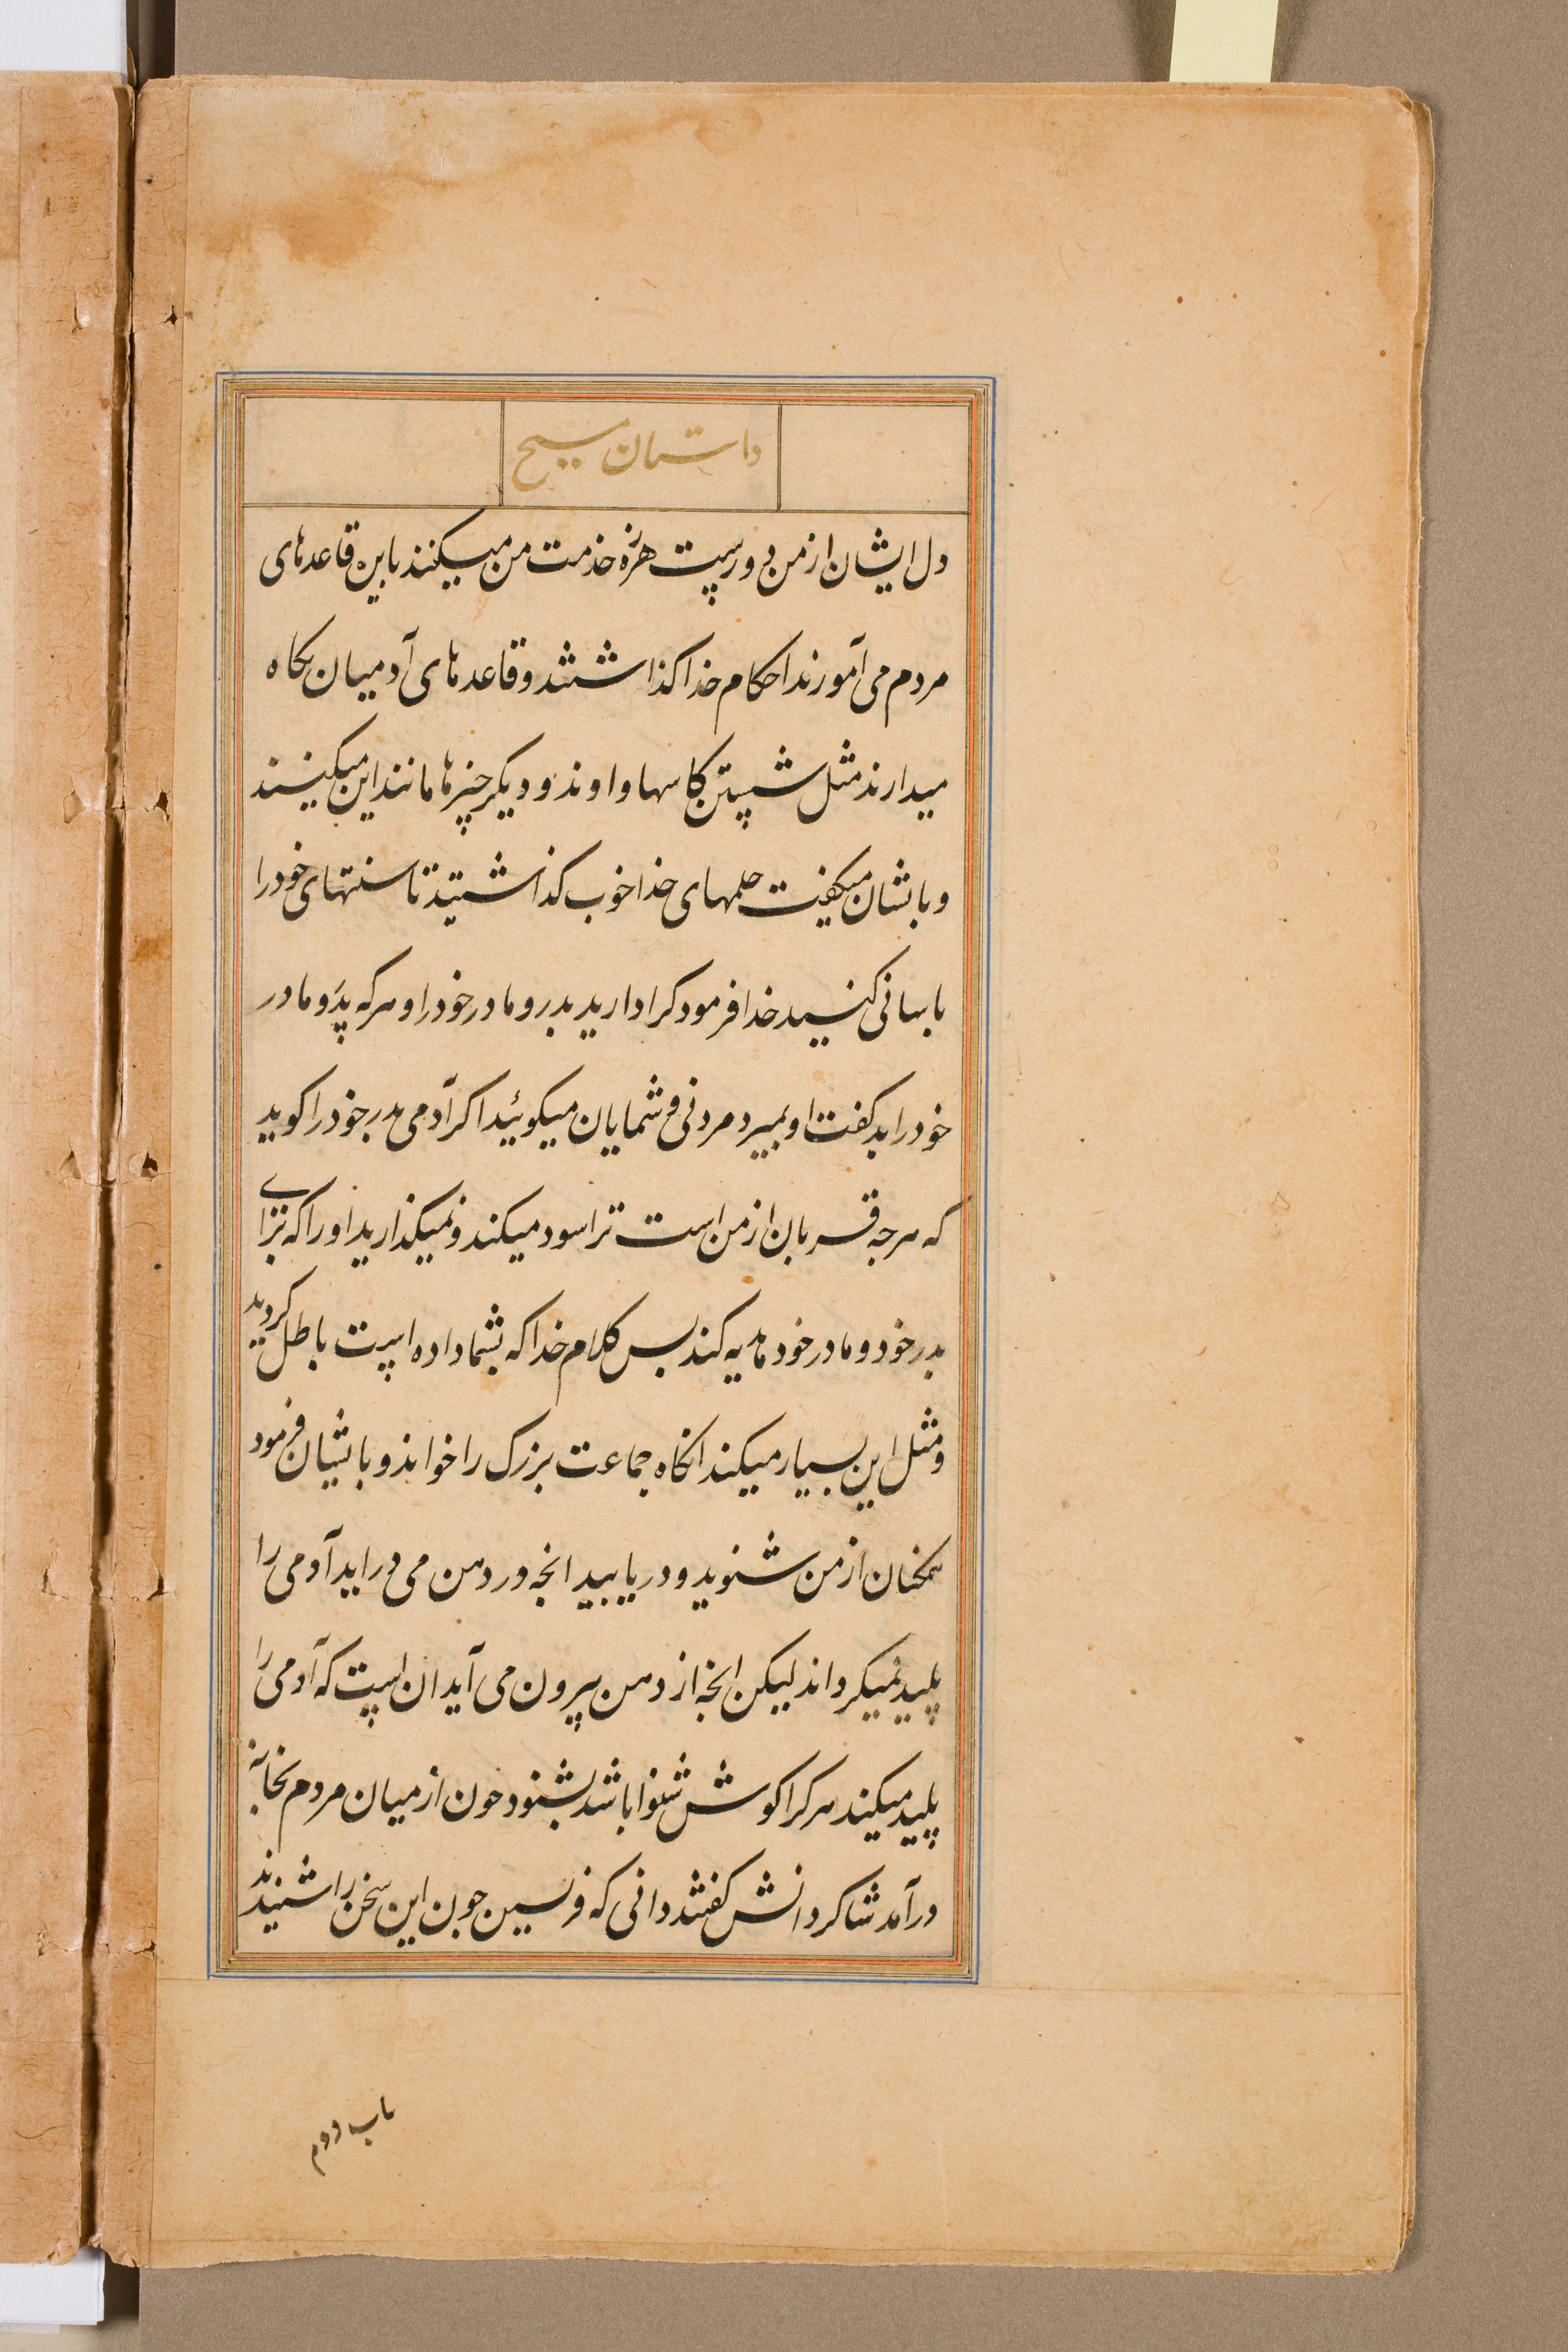 داستان مسیح
دل ایشان از من دورست هرزه خدمت من میکنند باین قاعدهای
مردم می آموزند احکام خدا کذاشتند و قاعدهای آدمیان نکاه
میدارند مثل شستن کاسها و اوند و دیکر چیزها مانند این میکنند
و بایشان میکفت حکمهای خدا خوب کذاشتید تا سنتهای خود را
باسانی کنید خدا فرمود کرا دارید بدر و مادر خود را و هرکه پدر و مادر
خود را بد کفت او بمیرد مردنی و شمایان میکوئید اکر آدمی بدر خود را کوید
که هرجه قربان از من است ترا سود میکند و نمیکذارید او را که برای
بدر خود و مادر خود هایه کند بس کلام خدا که بشما داده است باطل کردید
و مثل این بسیار میکند انکاه جماعت بزرک را خواند و بایشان فرمود
همکنان از من شنوید و دریابید انجه در دهن می دراید آدمی را
پلید نمیکرداند لیکن انجه از دهن بیرون می آید ان است که آدمی را
پلید میکند هرکرا کوش شنوا باشد بشنود جون از میان مردم بخانه
درآمد شاکردانش کفتند دانی که فریسین جون این سخن را شنیدند
باب دوم